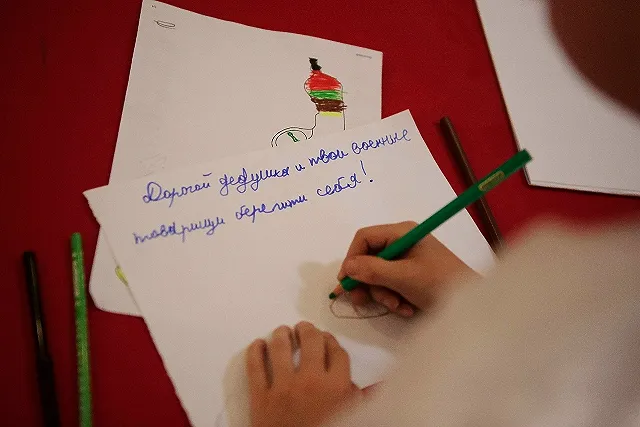 Дорогой дедушка и твои военные
товарищи берегити себя!